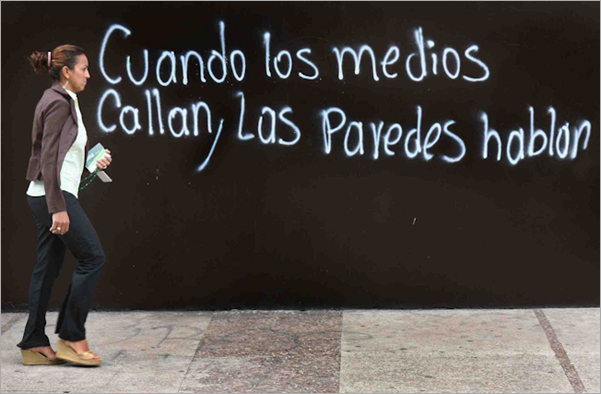 Cuando los medios
Callan, Las Paredes hablan